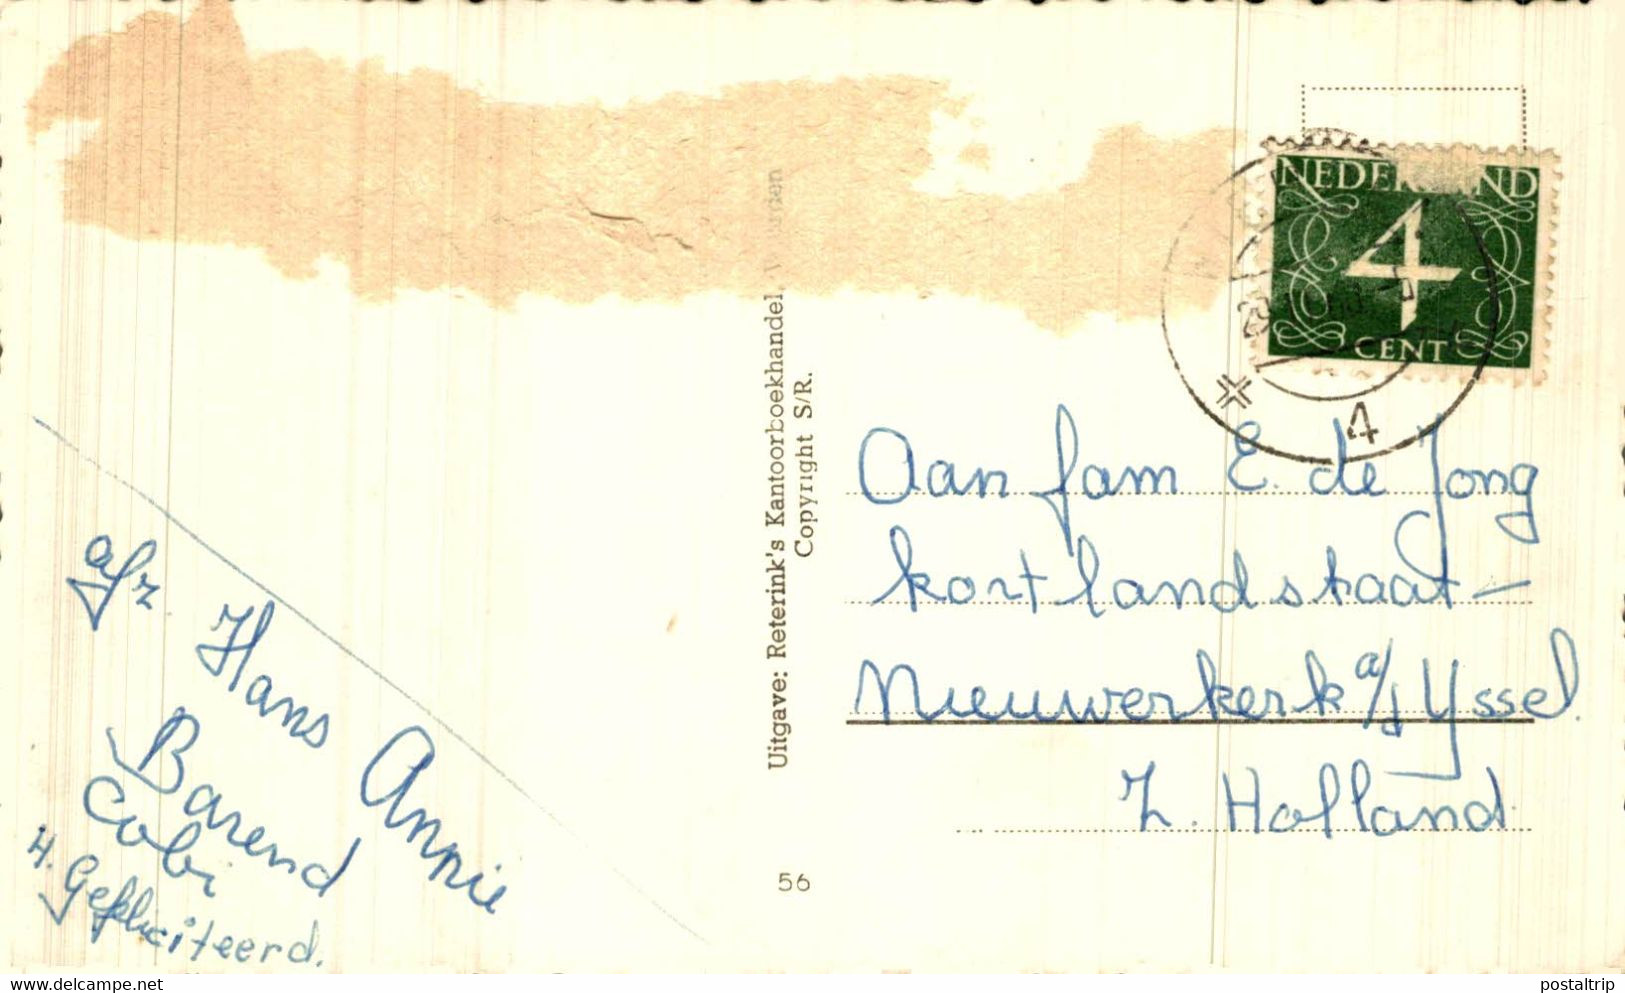 afz Hans Annie
Barend
Cobi
H. Gefeliciteerd.
Uitgave: Reterink's Kantoorboekhandel,
Copyright S/R.
56
NEDERLAND
4
CENT
4
Aan fam E. de Jong
kortlandstraat -
Nieuwerkerk a/d Yssel.
Z. Holland
www.delcampe.net
postaltrip